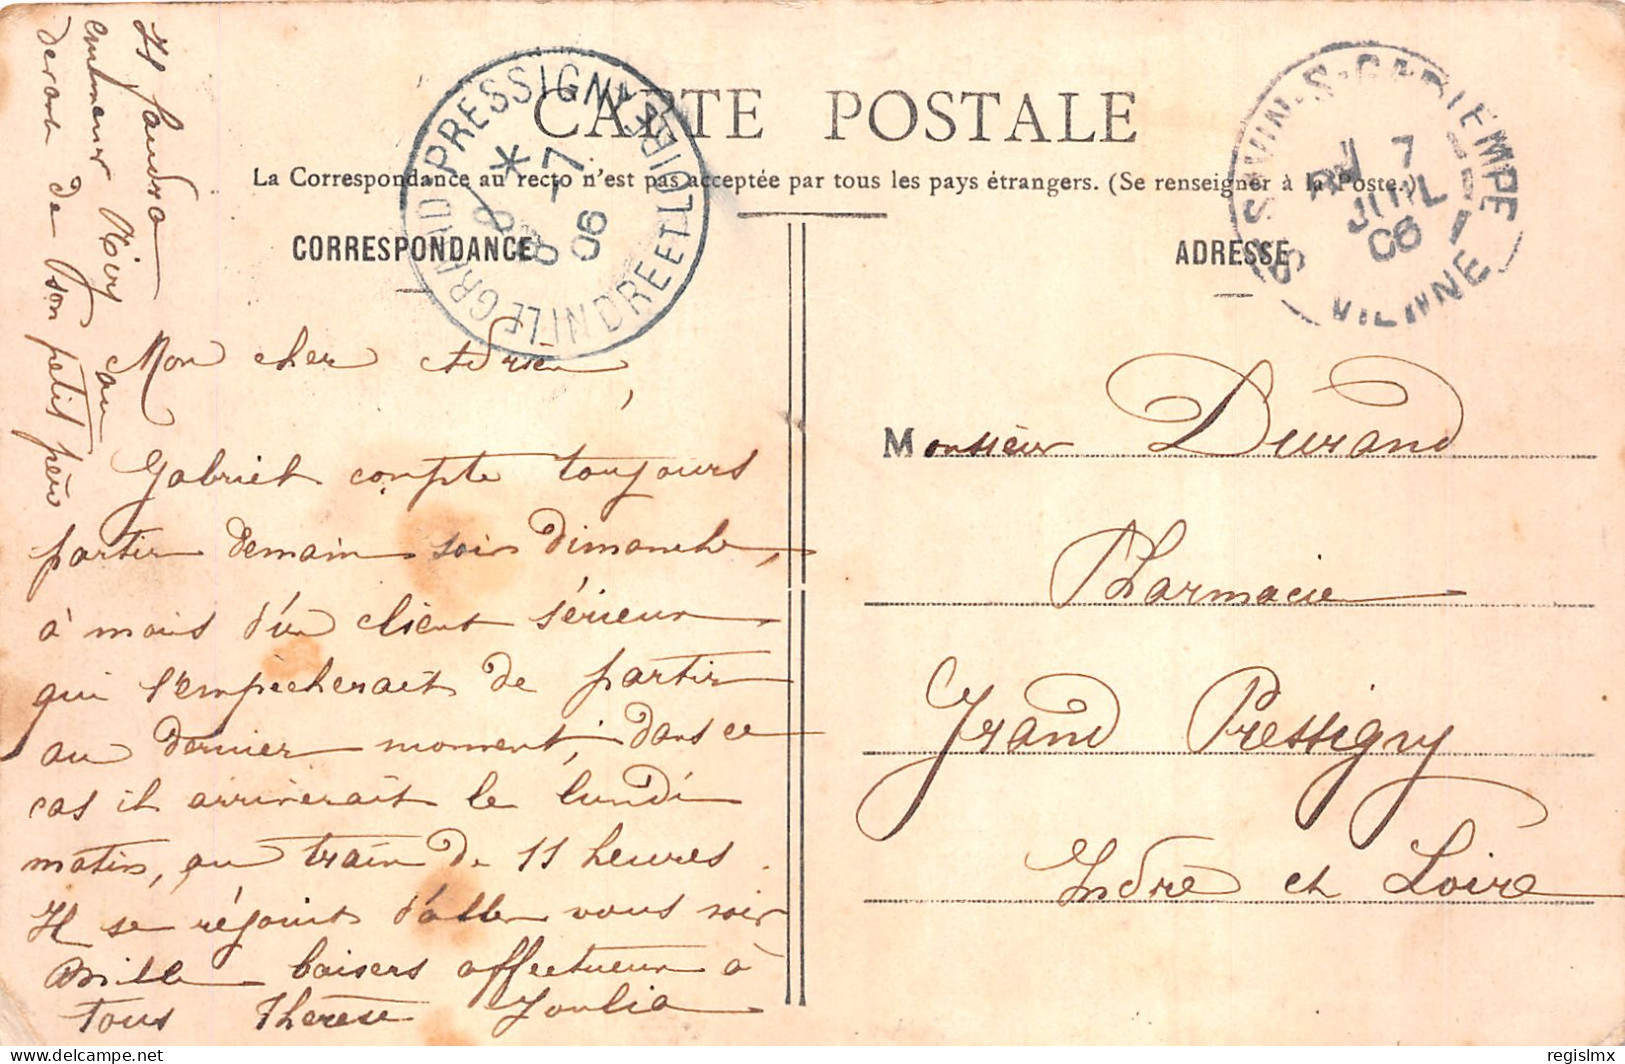 CARTE POSTALE
La Correspondance au recto n'est pas acceptée par tous les pays étrangers. (Se renseigner à la Poste.)
CORRESPONDANCE
ADRESSE
LE GRAND-PRESSIGNY
INDRE ET LOIRE
8 * 7
8 -7
06
7
JUIL
06
VIENNE
Mon cher Adrien,
Gabriel compte toujours
partir demain soir dimanche,
à mois d'un client sérieur
qui l'empêcherait de partir
au dernier moment, dans ce
cas il arriverait le lundi
matin, au train de 11 heures.
Il se réjouit d'aller vous voir
Mille baisers affectueux à
tous Thérèse
Il faudra
emmener au
devant de son petit père
Monsieur Durand
Pharmacie
Grand Pressigny
Indre et Loire
delcampe.net
regislmx